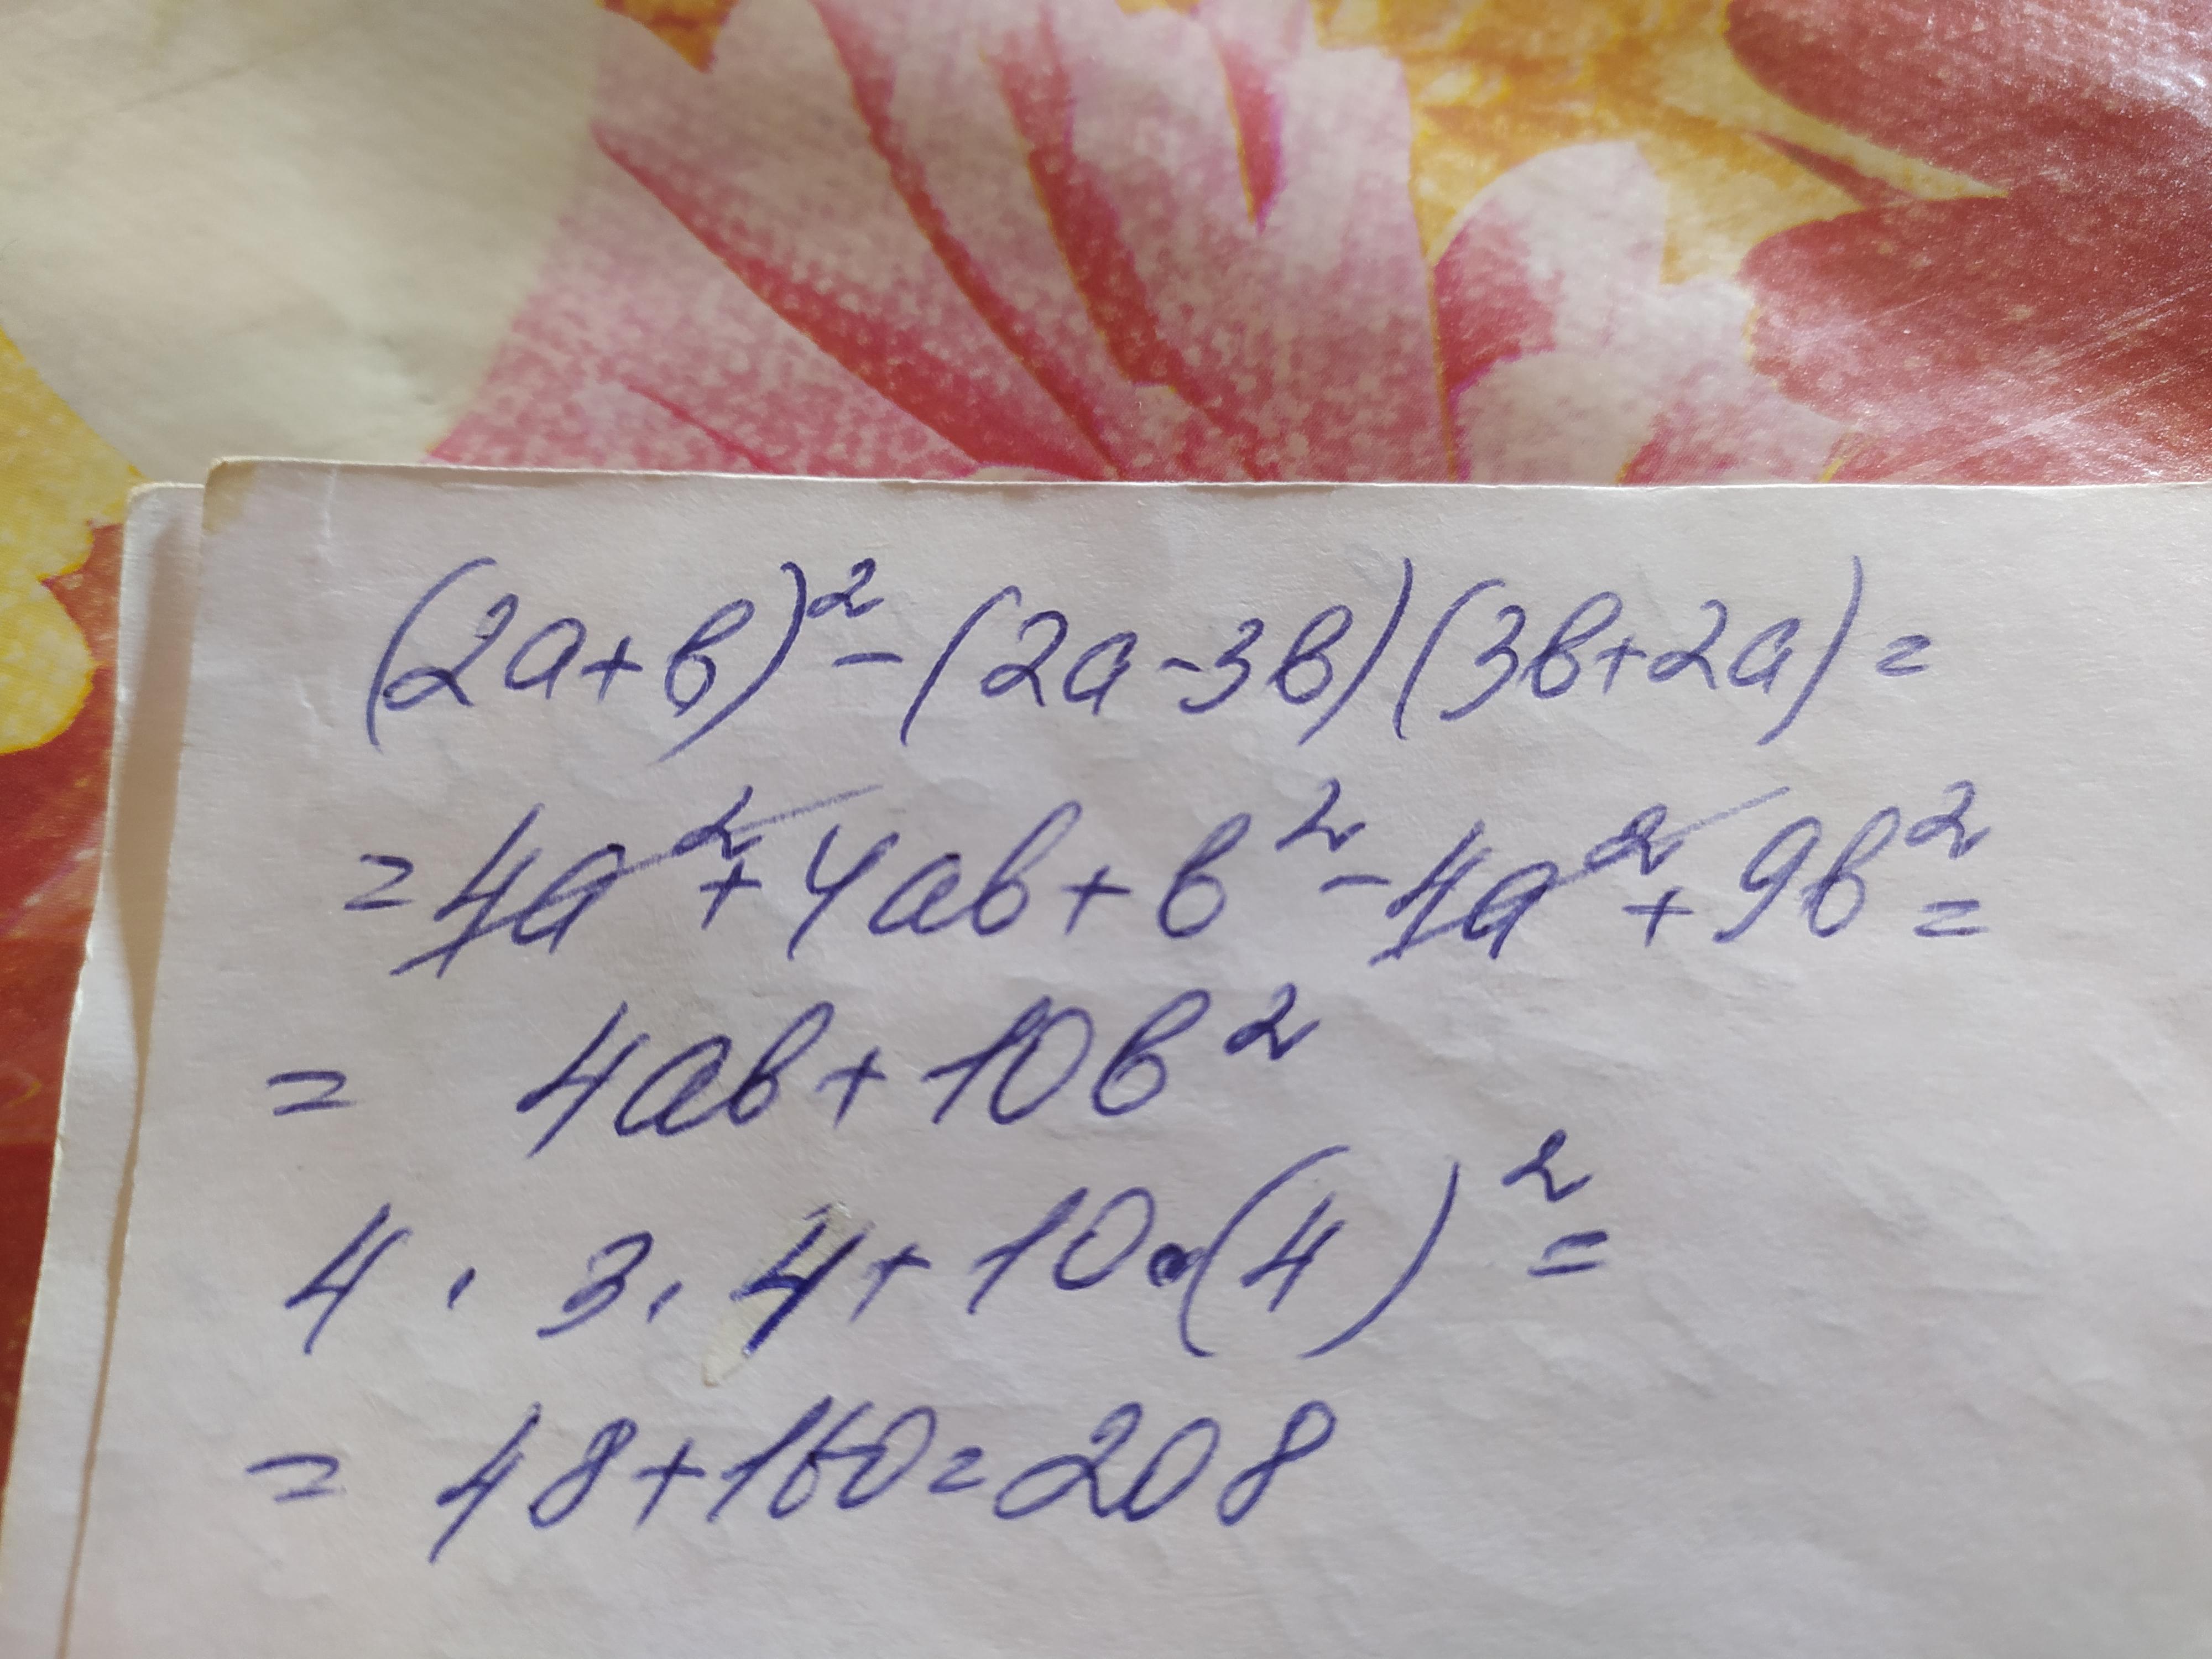 (2a+b)²-(2a-3b)(3b+2a)=
=4a²+4ab+b²-4a²+9b²=
= 4ab+10b²
4 · 3 · 4+10·(4)²=
= 48+160=208